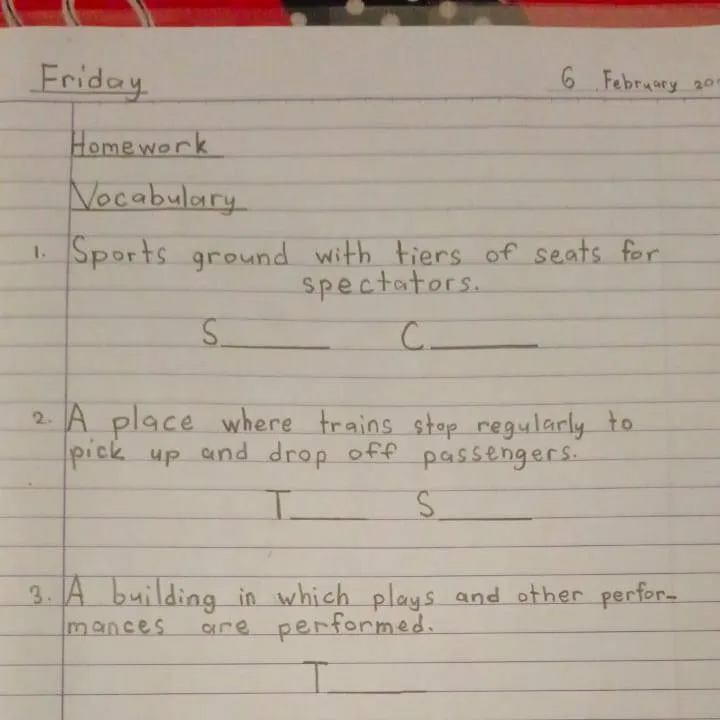 Friday 6 February
Homework
Vocabulary
1. Sports ground with tiers of seats for
spectators.
S______ C______
2. A place where trains stop regularly to
pick up and drop off passengers.
T______ S______
3. A building in which plays and other perfor-
mances are performed.
T______